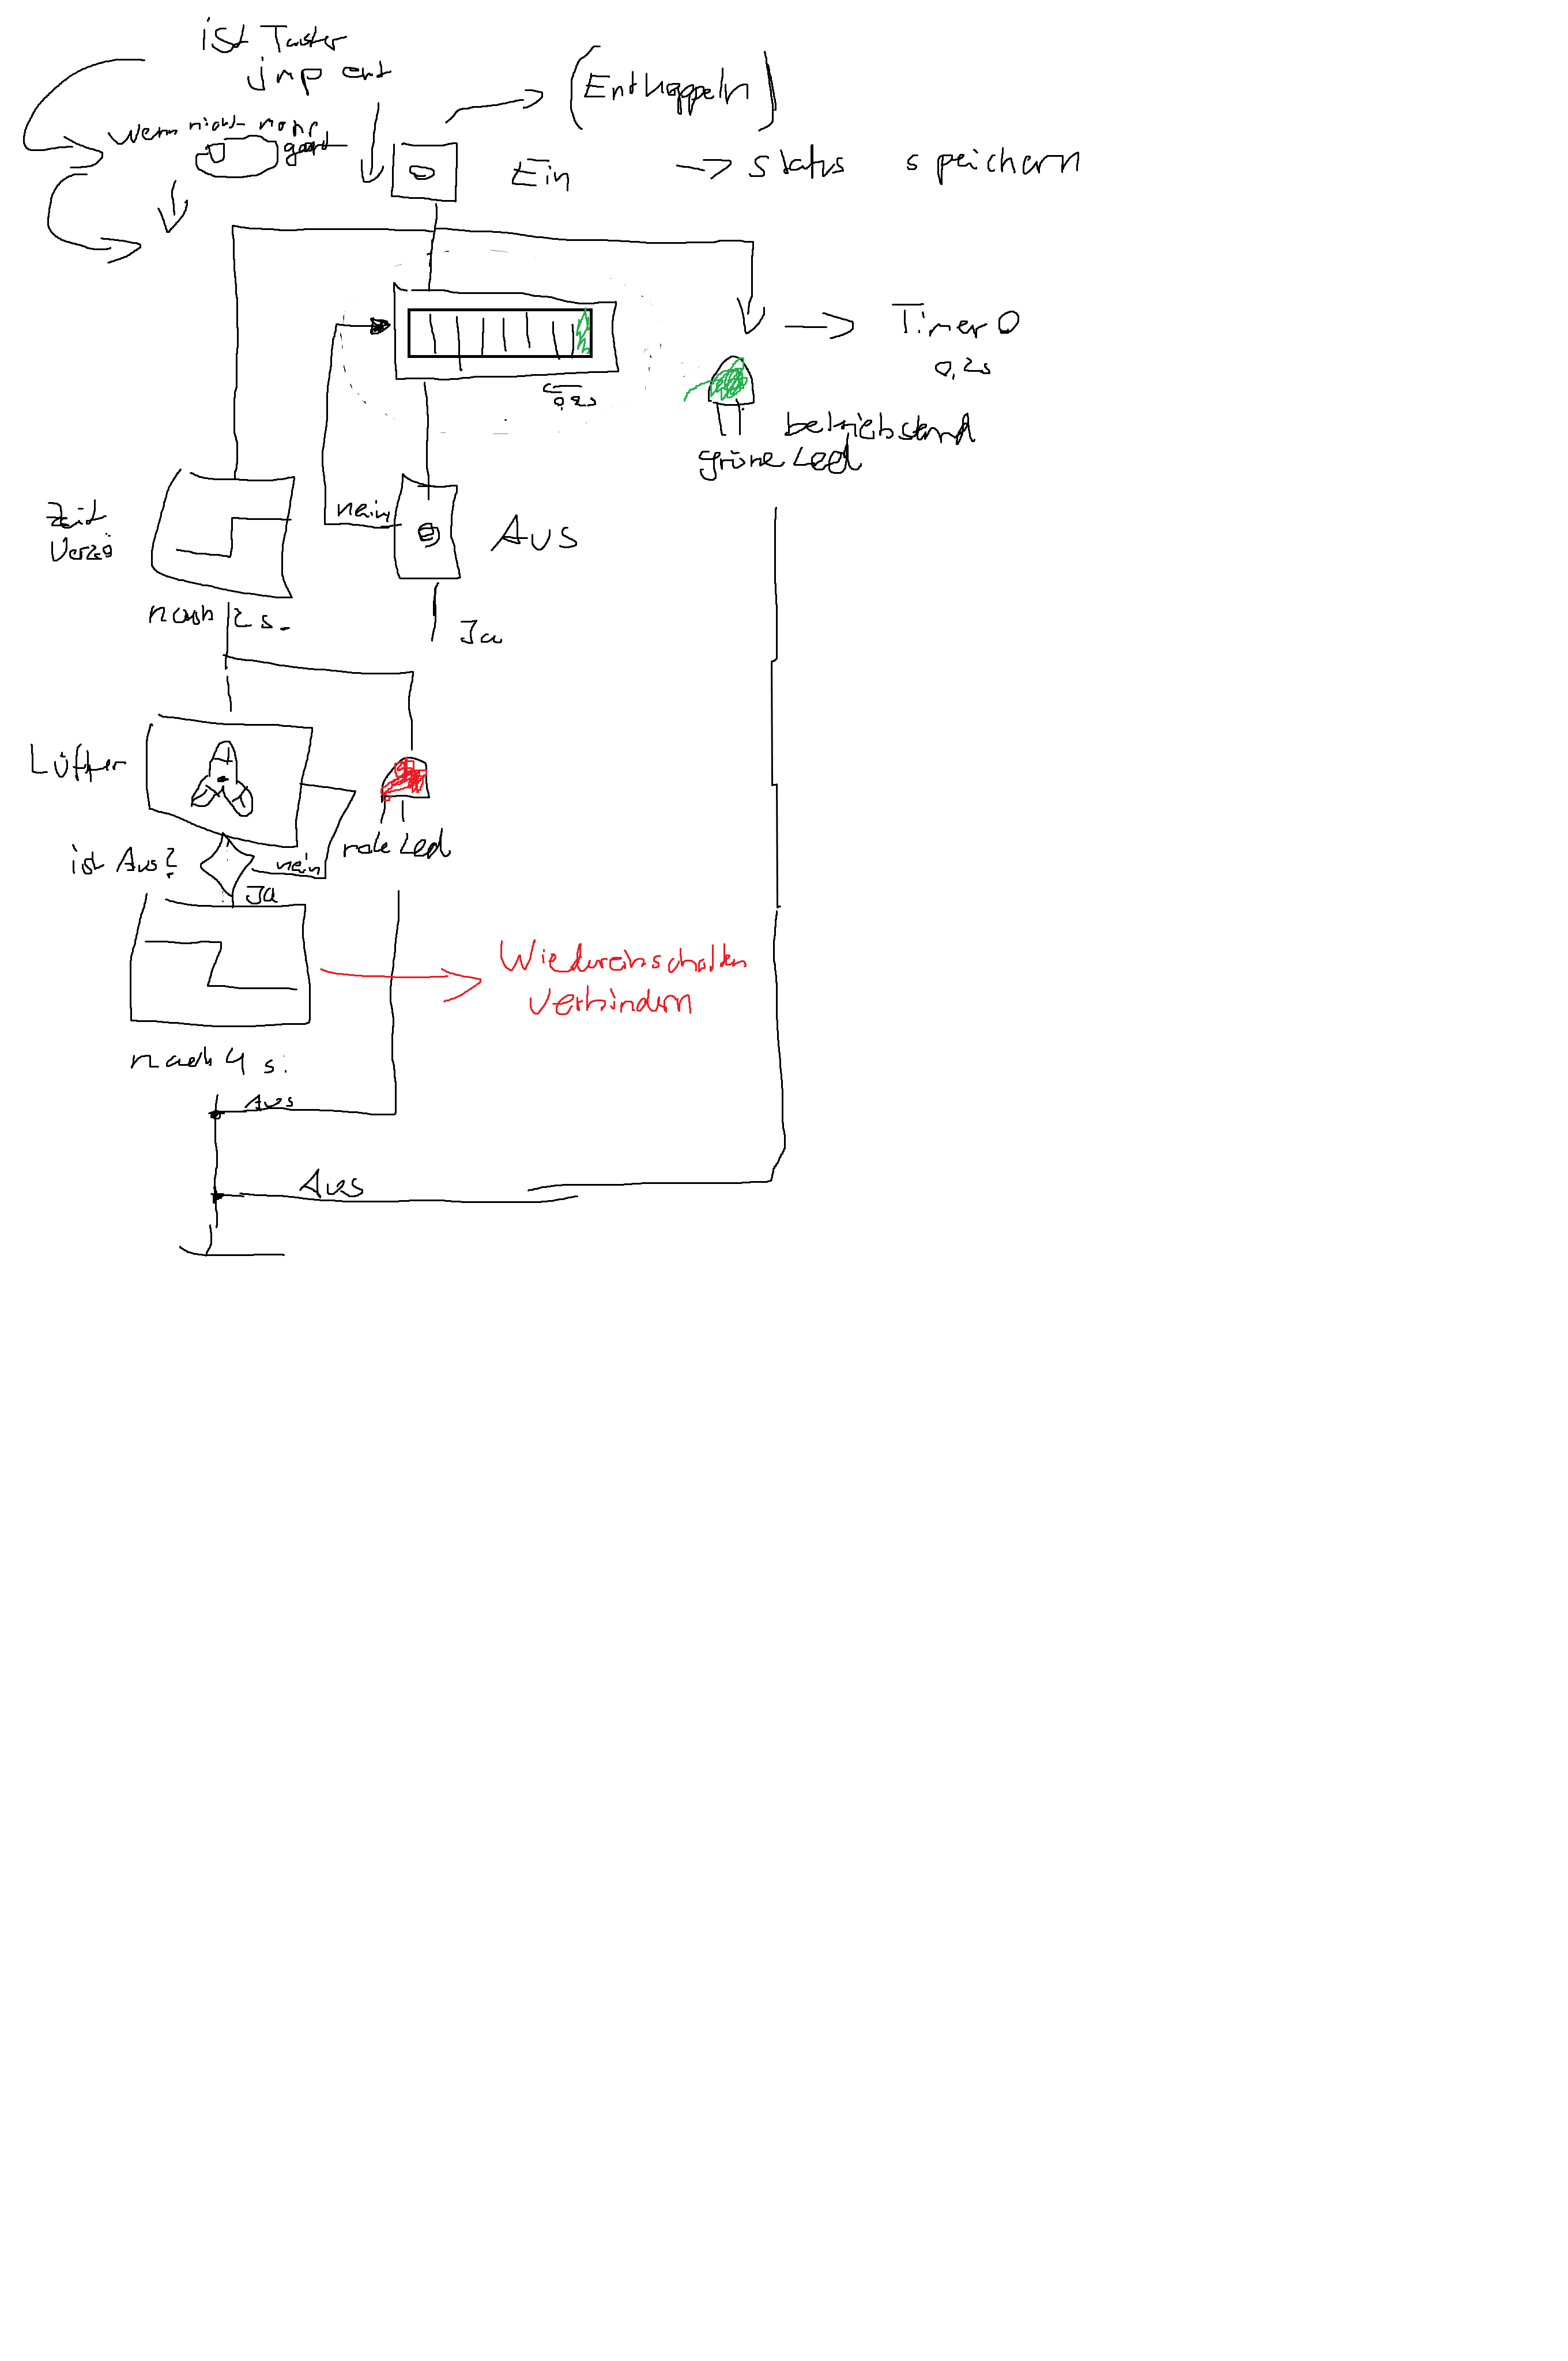 ist Taster
jmp ent
(Entkoppeln)
Wenn nicht mehr
Ein
-> Status speichern
-> Timer 0
0,2s
0,2s
betriebstand
grüne Led
Zeit
Verzö
nein
Aus
nach 2 s.
Ja
Lüfter
rote Led
ist Aus?
nein
Ja
Wiedereinschalten
verhindern
nach 4 s.
Aus
Aus